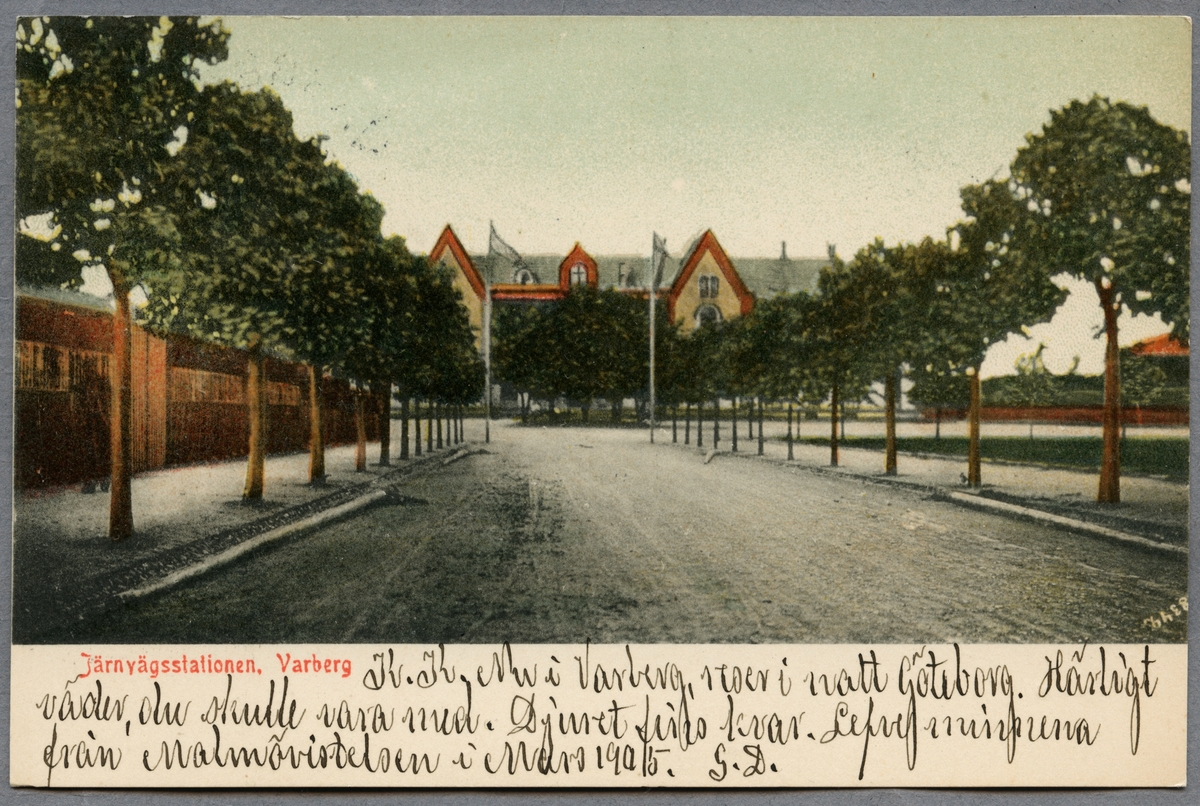 8344.
Järnvägsstationen, Varberg K. K. Nu i Varberg, reser i natt Göteborg. Härligt
väder, du skulle vara med. Djuret fins kvar. Lefve minnena
från Malmövistelsen i Mars 1905. G. D.